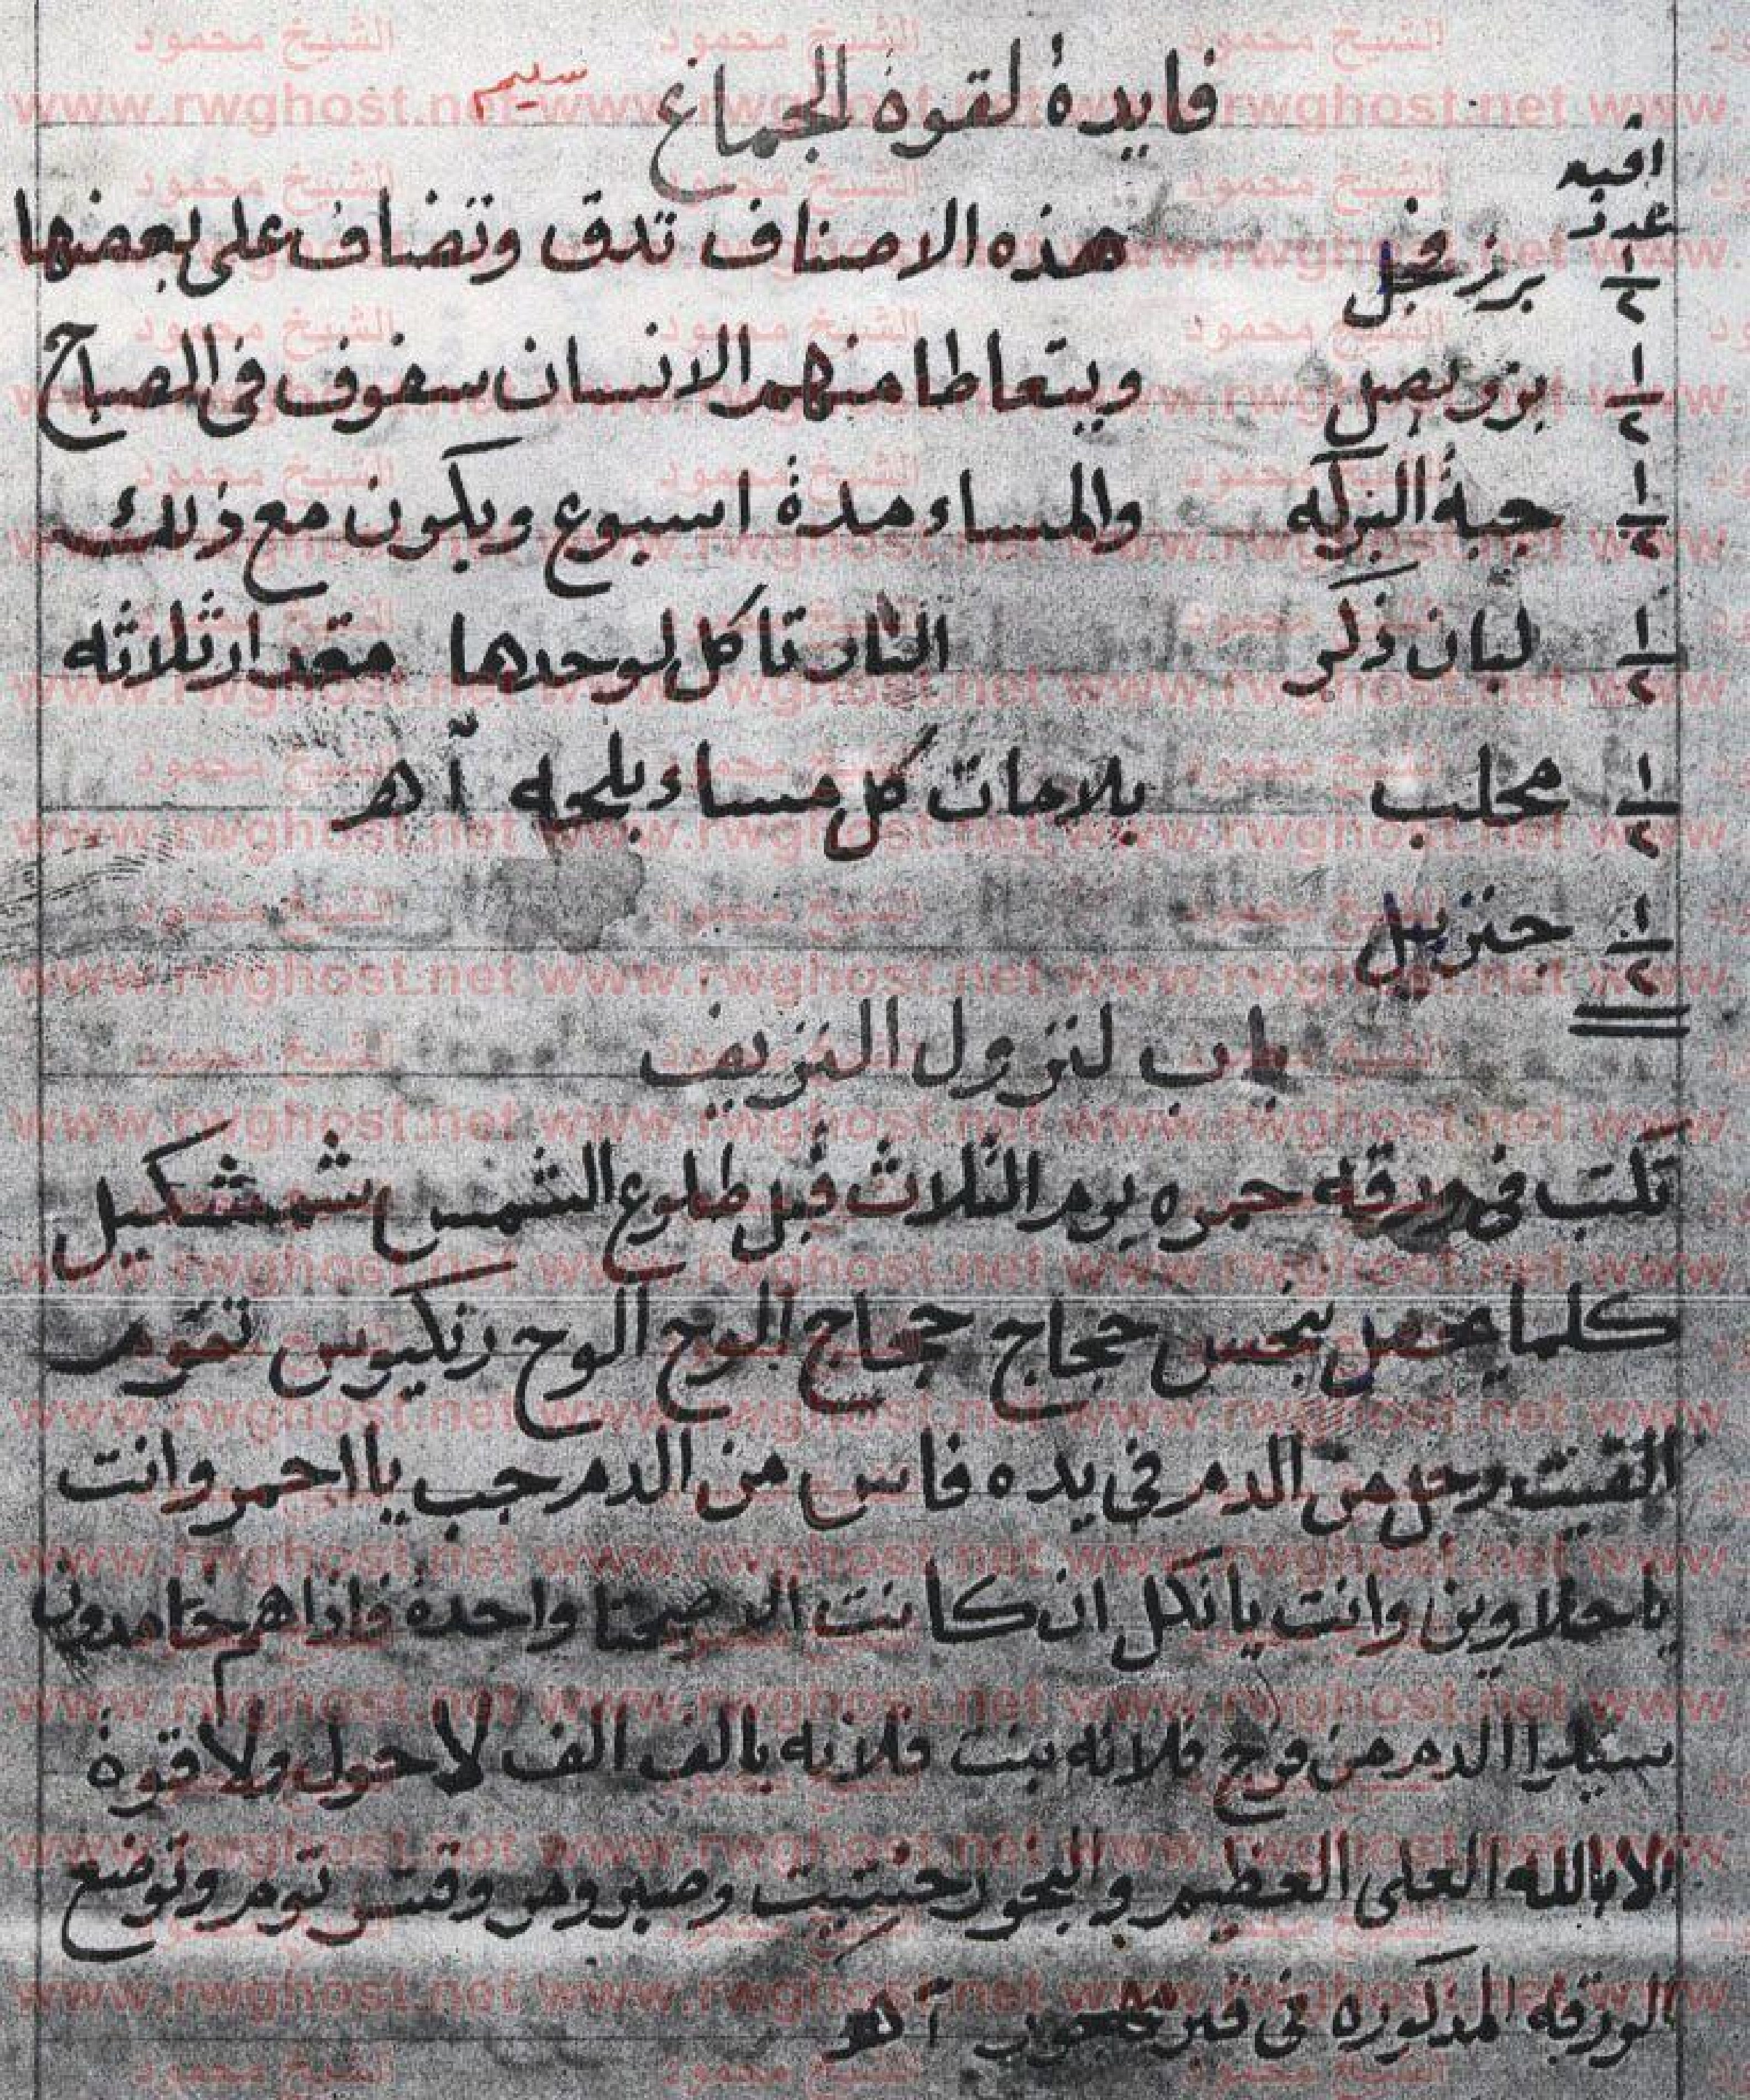 فايدة لقوة الجماع سليم
اقيه
عدد
١/٢ برز فجل هذه الاصناف تدق وتضاف على بعضها
١/٢ بزر بصل ويتعاطا منهم الانسان سفوف فى الصباح
١/٢ حبة البركه والمساء مدة اسبوع ويكون مع ذلك
١/٢ لبان ذكر تاكل لوحدها مقدار ثلاثه
١/٢ محلب بلاحات كل مساء بلحه آ ه
١/٢ جنزبيل
باب لنزول النزيف
تكتب فى ورقه يوم الثلاث قبل طلوع الشمس شمشكيل
كلما حجاج حجاج الوح الوح زنكيوس تقوم
القيت رجل من الدم فى يده فاس من الدم جب يا احمر وانت
يا وانت يا ان كانت الا صيحتا واحدة فاذا هم خامدون
الدم من فرج فلانه بنت فلانه بالف الف لاحول ولا قوة
الا بالله العلى العظيم والبخور حنتيت وصبر ومر وقشر توم وتوضع
الورقه المذكوره فى قبر آ ه
الشيخ محمود
www.rwghost.net